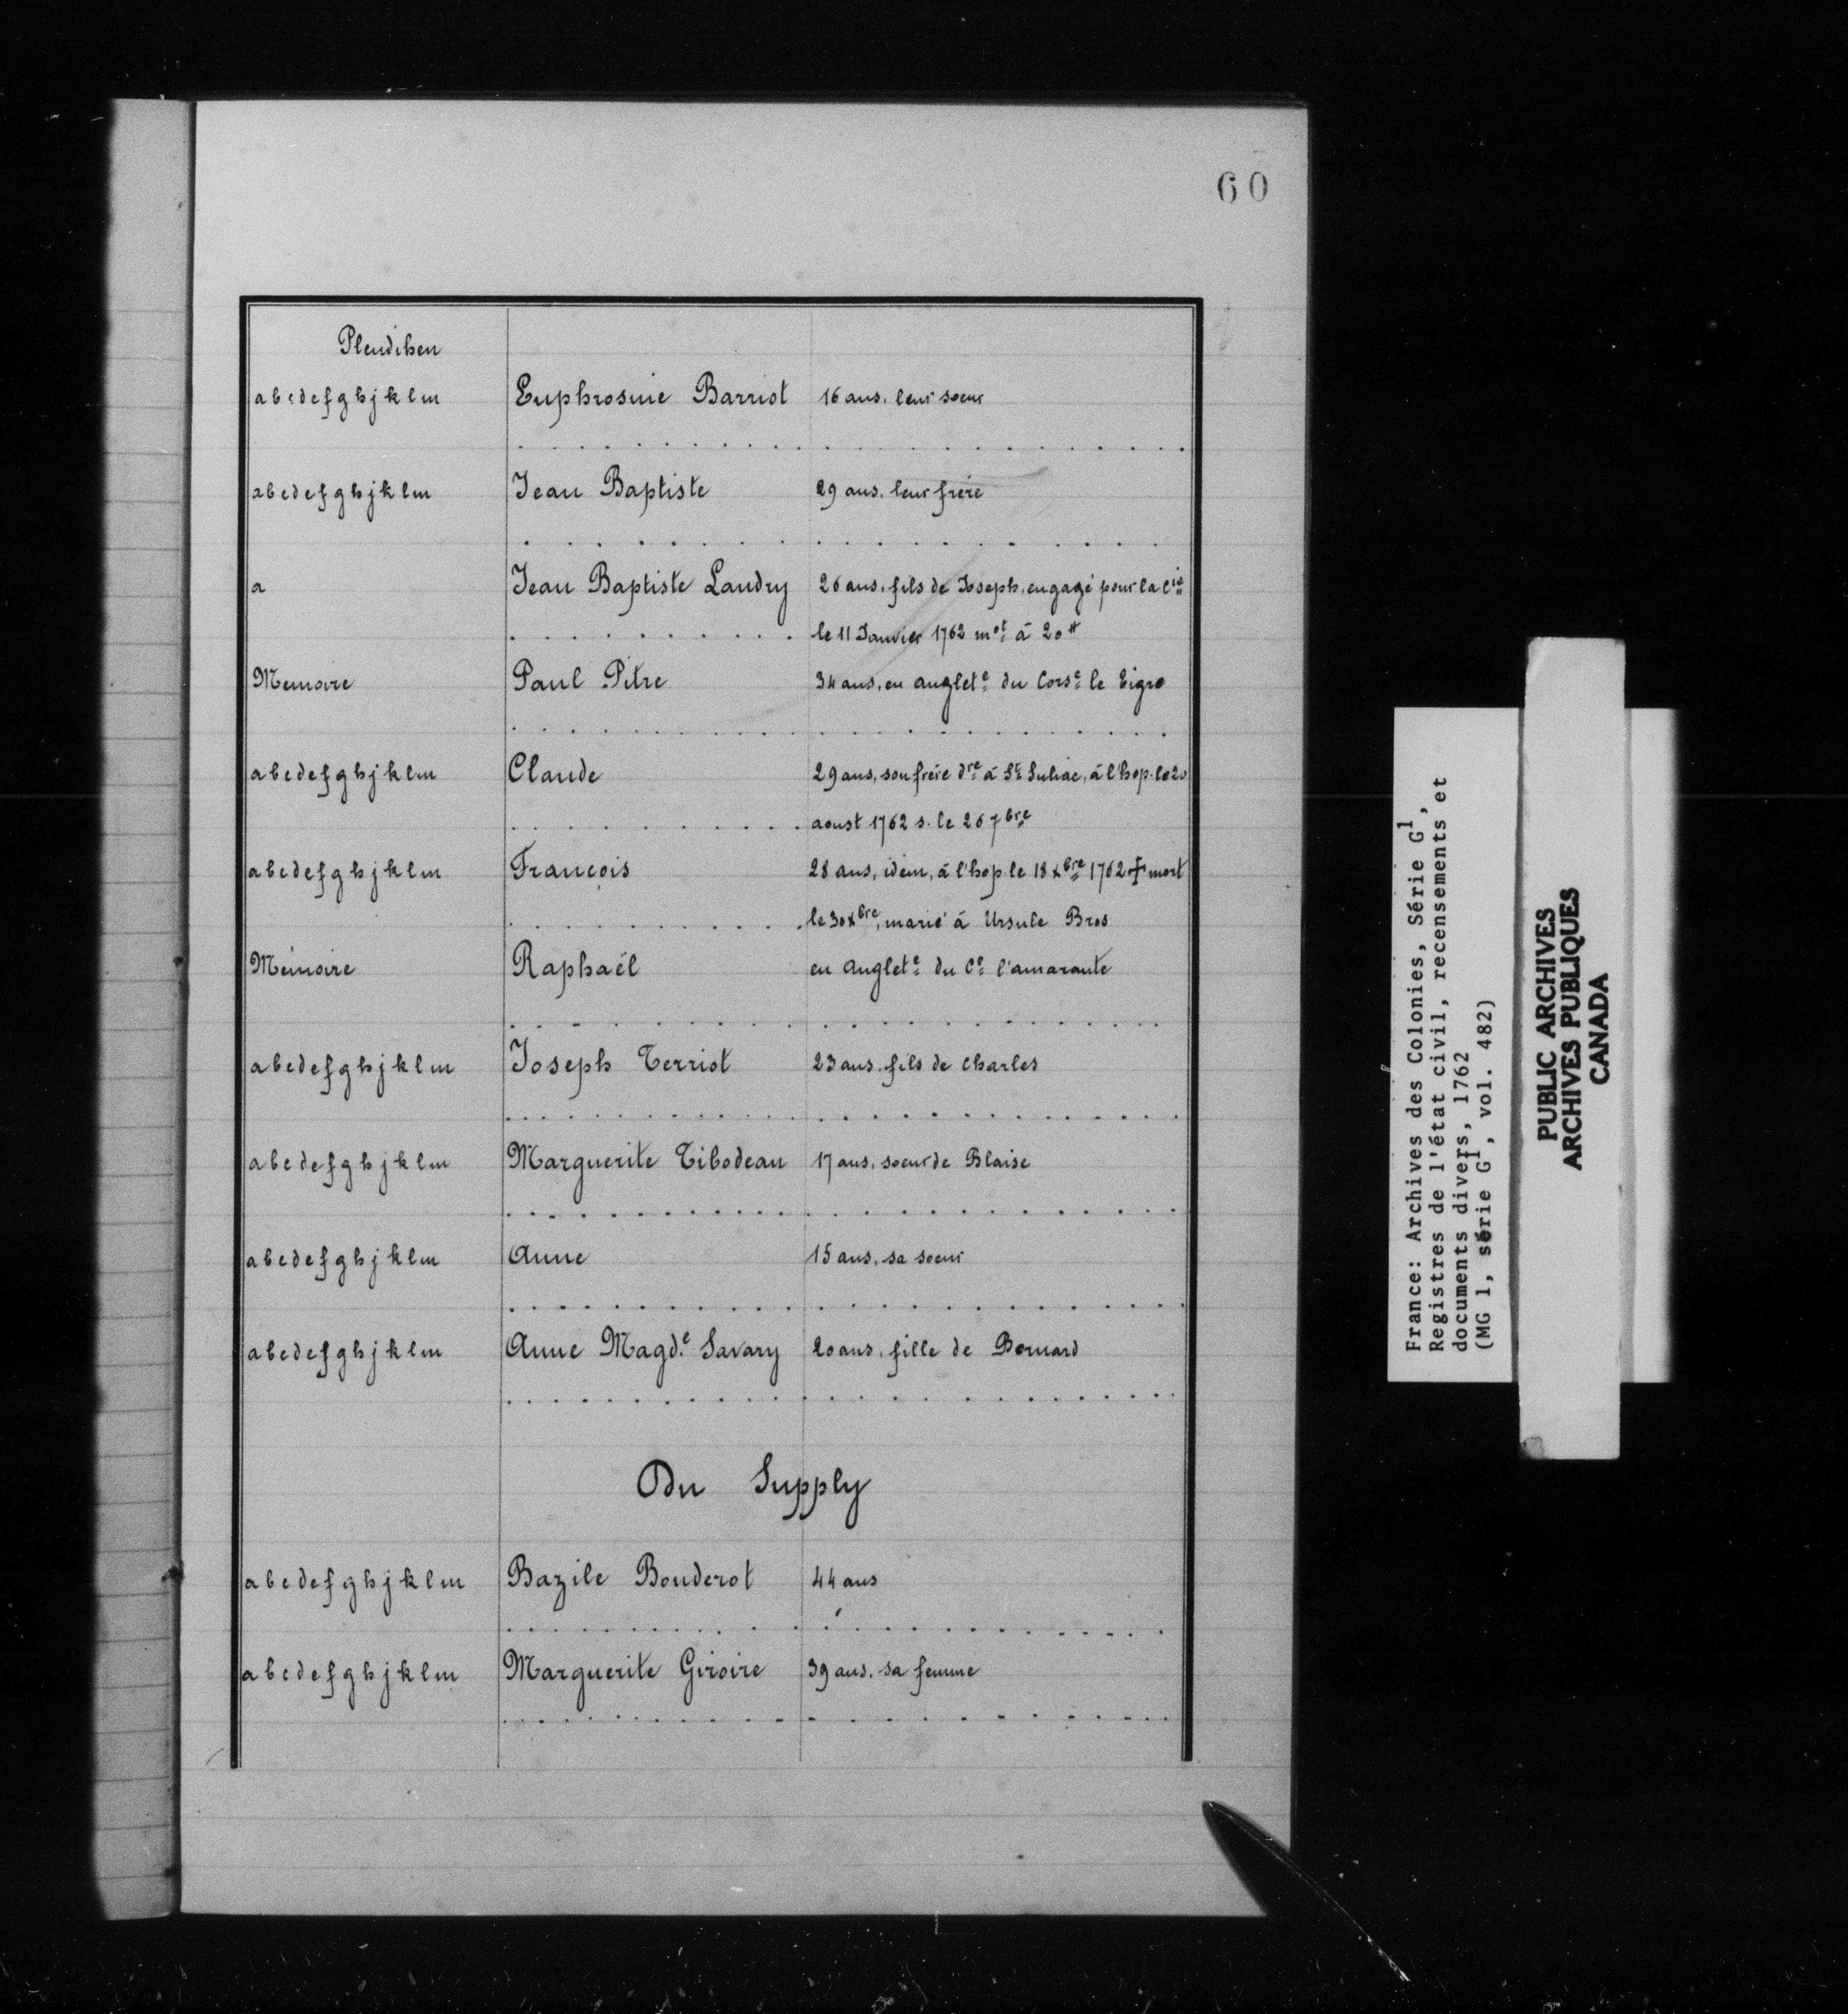 60
Pleudihen
abcdefghjklm Euphrosine Barriot 16 ans, leur soeur
abcdefghjklm Jean Baptiste 29 ans, leur frère
a Jean Baptiste Landry 26 ans, fils de Joseph, engagé pour la Cie
le 11 Janvier 1762 mot à 20 ₶
Memoire Paul Pitre 34 ans, en Anglete du Corse le Tigre
abcdefghjklm Claude 29 ans, son frère dre à St Suliac, à l'hop. le 20
aoust 1762 s. le 26 7bre
abcdefghjklm François 28 ans, idem, à l'hop le 18 xbre 1762 + mort
le 30 xbre, marié à Ursule Bros
Mémoire Raphaël en Anglete du Ce l'amarante
abcdefghjklm Joseph Terriot 23 ans, fils de Charles
abcdefghjklm Marguerite Tibodeau 17 ans, soeur de Blaise
abcdefghjklm Anne 15 ans, sa soeur
abcdefghjklm Anne Magd.e Savary 20 ans, fille de Bernard
Du Supply
abcdefghjklm Bazile Bouderot 44 ans
abcdefghjklm Marguerite Giroire 39 ans, sa femme
France: Archives des Colonies, Série G1,
Registres de l'état civil, recensements et
documents divers, 1762
(MG 1, série G1, vol. 482)
PUBLIC ARCHIVES
ARCHIVES PUBLIQUES
CANADA